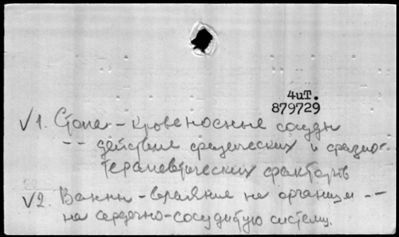 4uT.
879729
√ 1. Стопа - кровеносные сосуды
-- действие физических и физио-
терапевтических факторов
√2. Ванны - влияние на организм --
на сердечно-сосудистую систему.